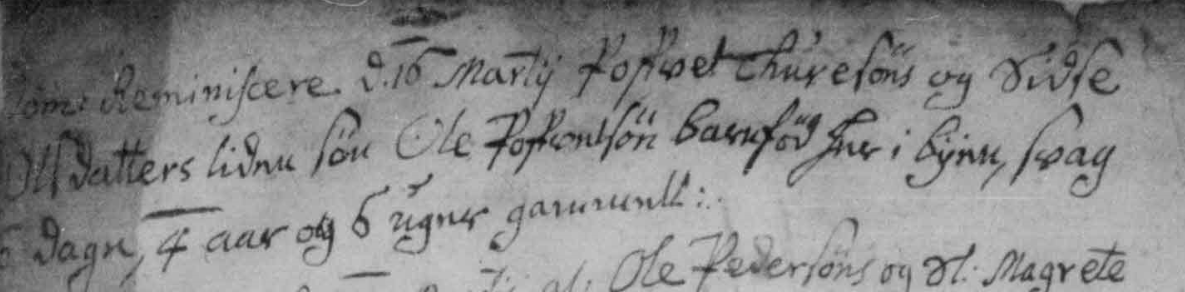 Dom: Reminiscere d. 16 Martij Pofwel Thuresöns og Sidse
Olsdatters liden sön Ole Pofwelsön barnfød her i byen, svag
dage, 4 aar og 6 uger gammell:
Ole Pedersöns og Sl: Magrete